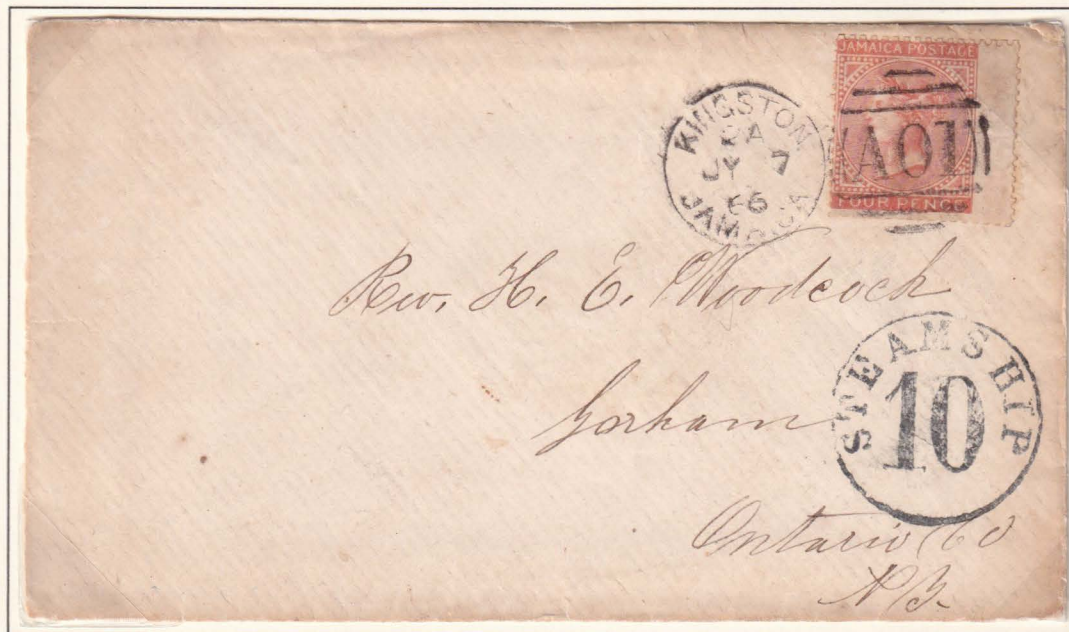 JAMAICA POSTAGE
A01
FOUR PENCE
KINGSTON
JY 7
66
JAMAICA
Rev. H. E. Woodcock
Gorham
STEAMSHIP
10
Ontario Co
N Y.